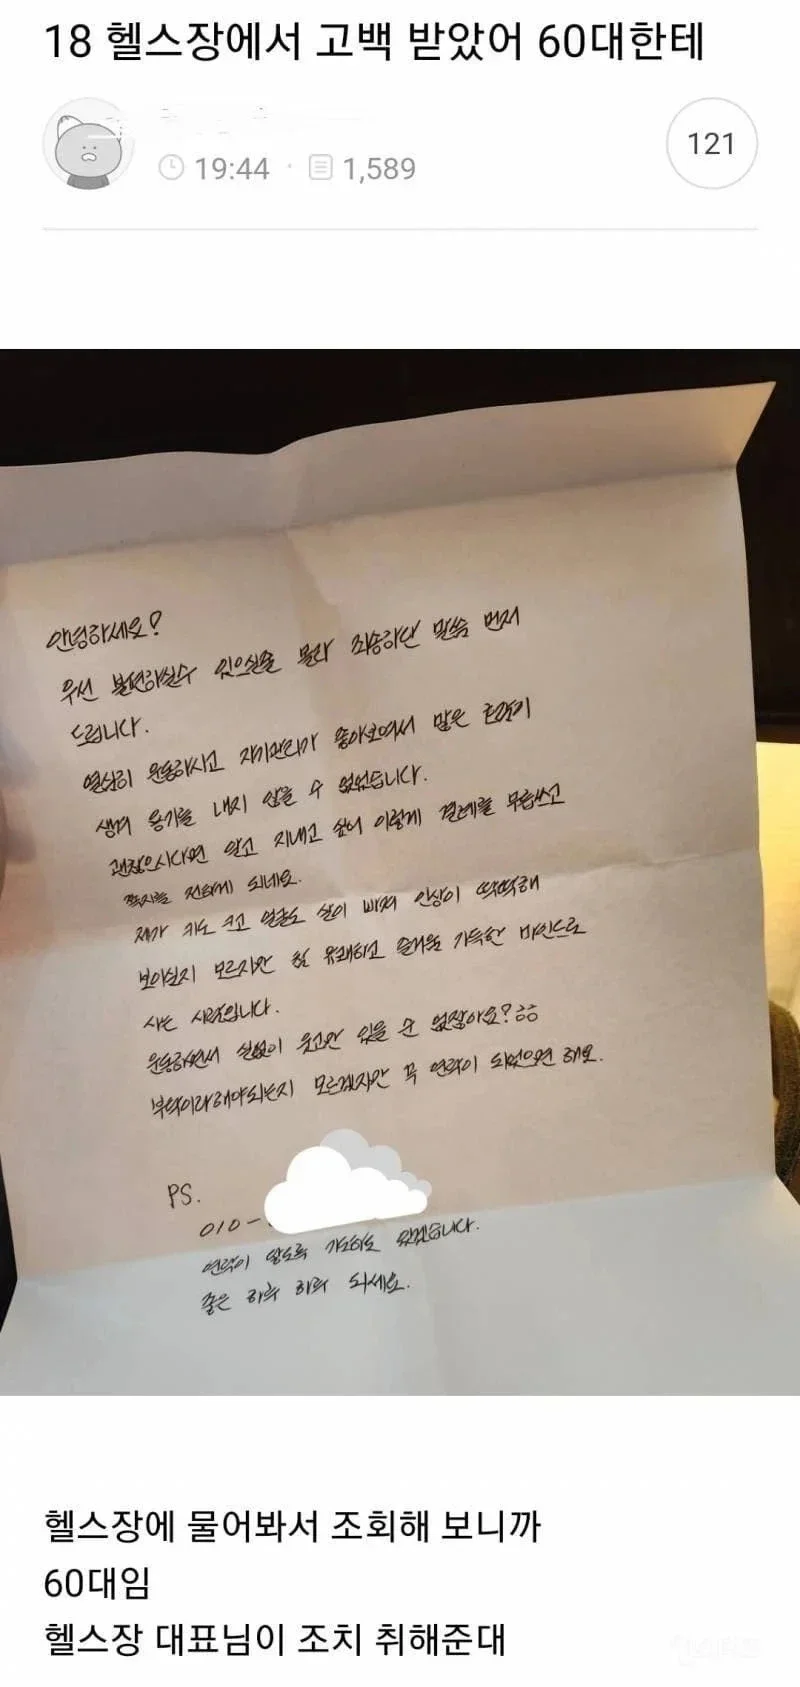 18 헬스장에서 고백 받았어 60대한테
19:44 · 1,589
121
안녕하세요?
우선 불편하실수 있으실줄 몰라 죄송하단 말씀 먼저
드립니다.
열심히 운동하시고 자기관리가 좋아보여서 많은 호감이
생겨 용기를 내지 않을 수 없었습니다.
괜찮으시다면 알고 지내고 싶어 이렇게 결례를 무릅쓰고
쪽지를 전하게 되네요.
제가 키도 크고 얼굴도 살이 빠져 인상이 딱딱해
보이실지 모르지만 참 유쾌하고 즐거움 가득한 마인드로
사는 사람입니다.
운동하면서 실없이 웃고만 있을 순 없잖아요? ㅎㅎ
부탁이라해야되는지 모르겠지만 꼭 연락이 되었으면 해요.
PS.
010-
연락이 올도록 기다리고 있겠습니다.
좋은 하루 하루 되세요.
헬스장에 물어봐서 조회해 보니까
60대임
헬스장 대표님이 조치 취해준대